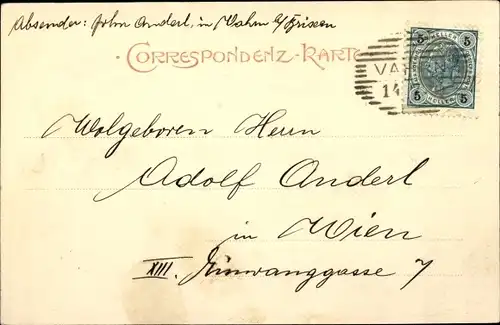 Absender: John Anderl, in Vahrn b/Brixen
CORRESPONDENZ-KARTE
5 HELLER 5
VAHRN
14
5 HELLER 5
Wolgeboren Herrn
Adolf Anderl
in Wien
XIII. Hinwanggasse 7